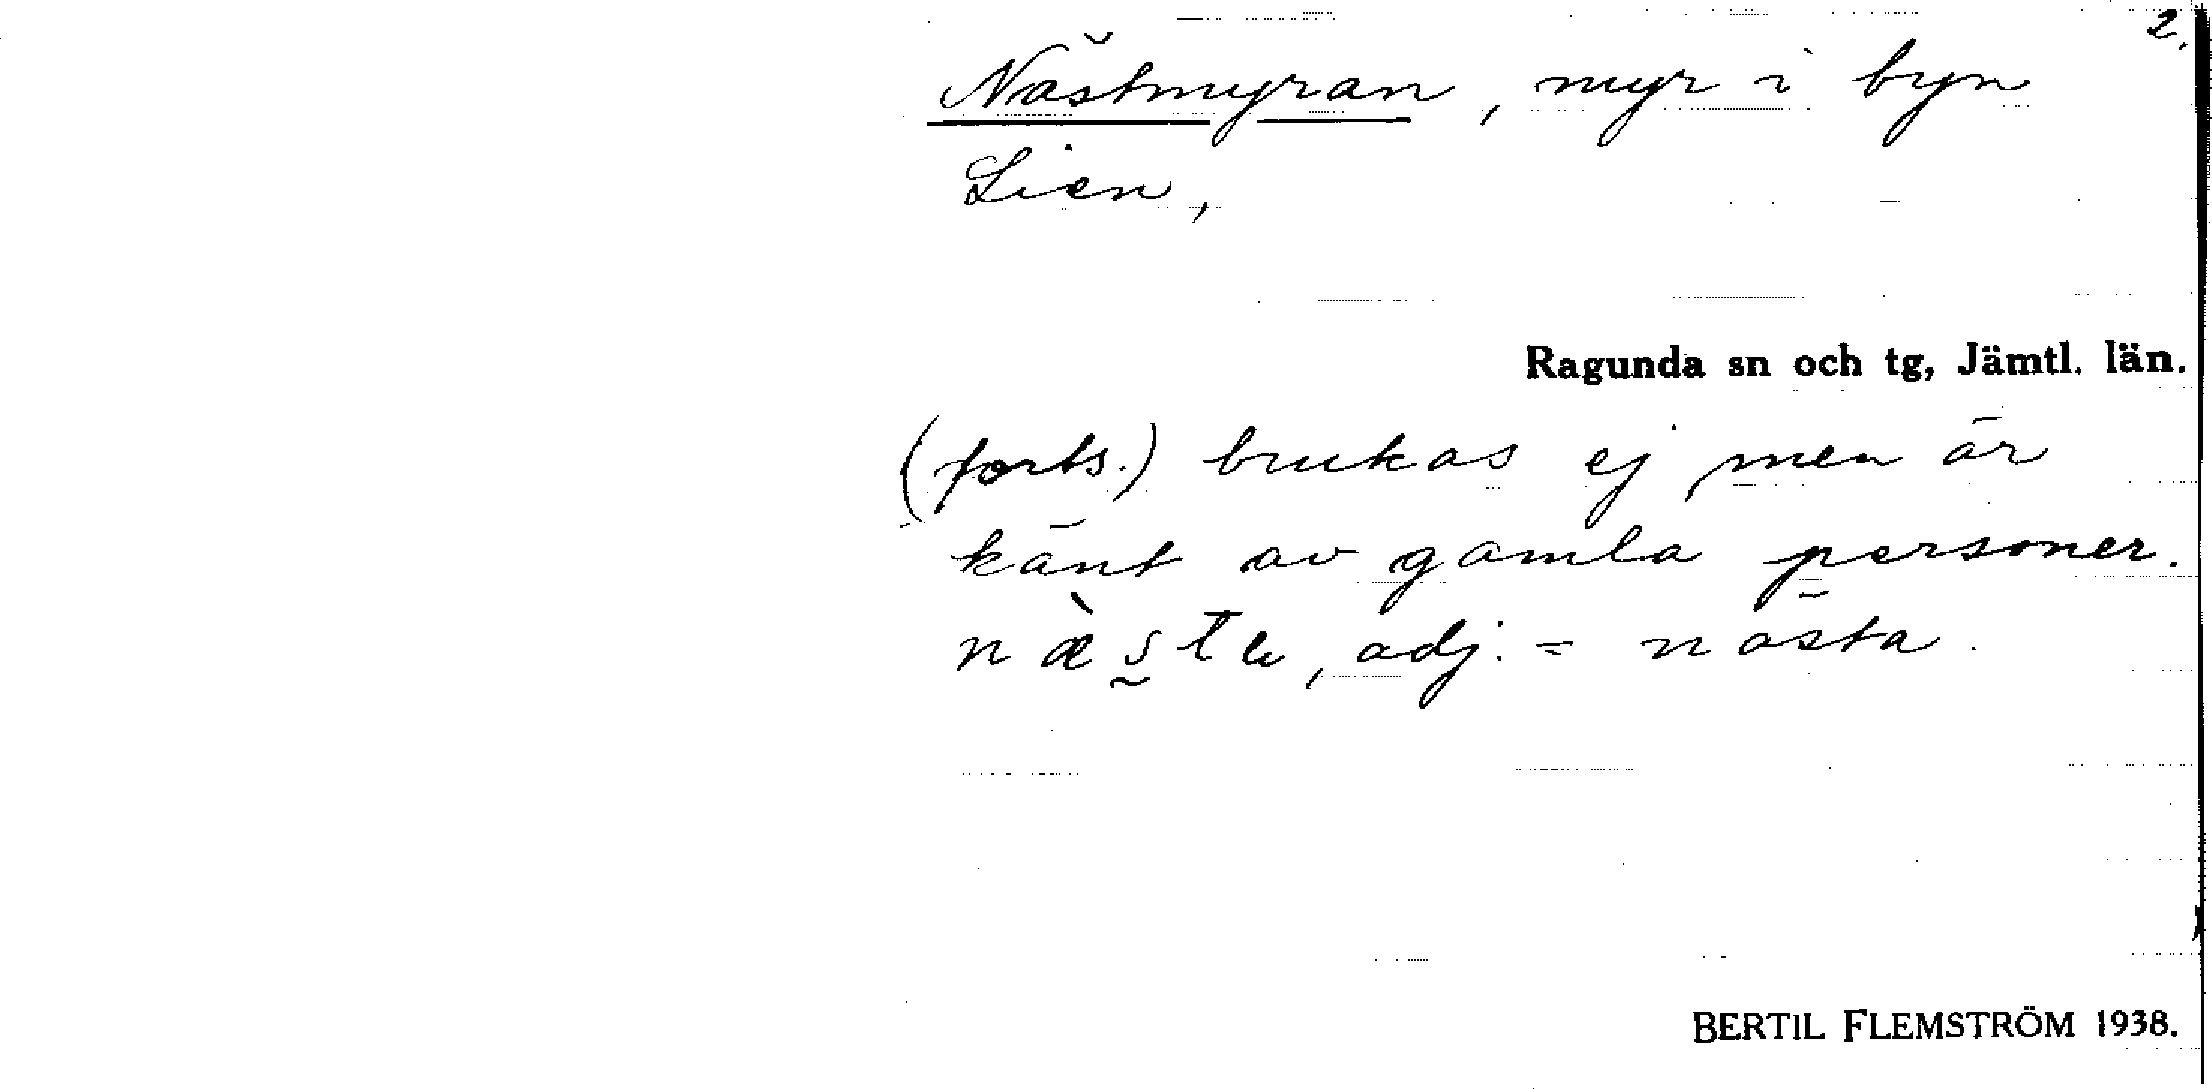 2.
Nästmyran, myr i byn
Lien,
Ragunda sn och tg, Jämtl. län.
(forts.) brukas ej men är
känt av gamla personer.
adj. = nästa.
BERTIL FLEMSTRÖM 1938.